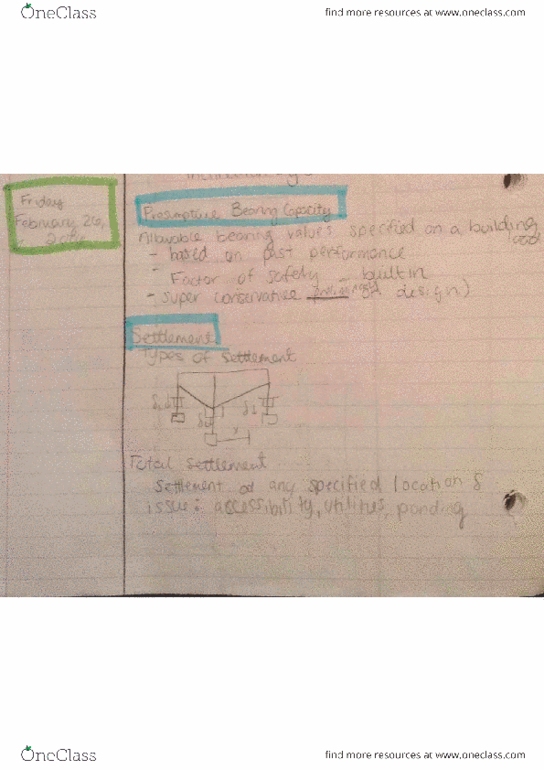 OneClass
find more resources at www.oneclass.com
Friday
February 26,
Presumptive Bearing Capacity
Allowable bearing values specified on a building
- based on past performance
- Factor of safety - built in
- super conservative design)
Settlement
Types of settlement
δ1
δ2
x
Total Settlement
Settlement at any specified location δ
issue: accessibility, utilities, ponding
OneClass
find more resources at www.oneclass.com